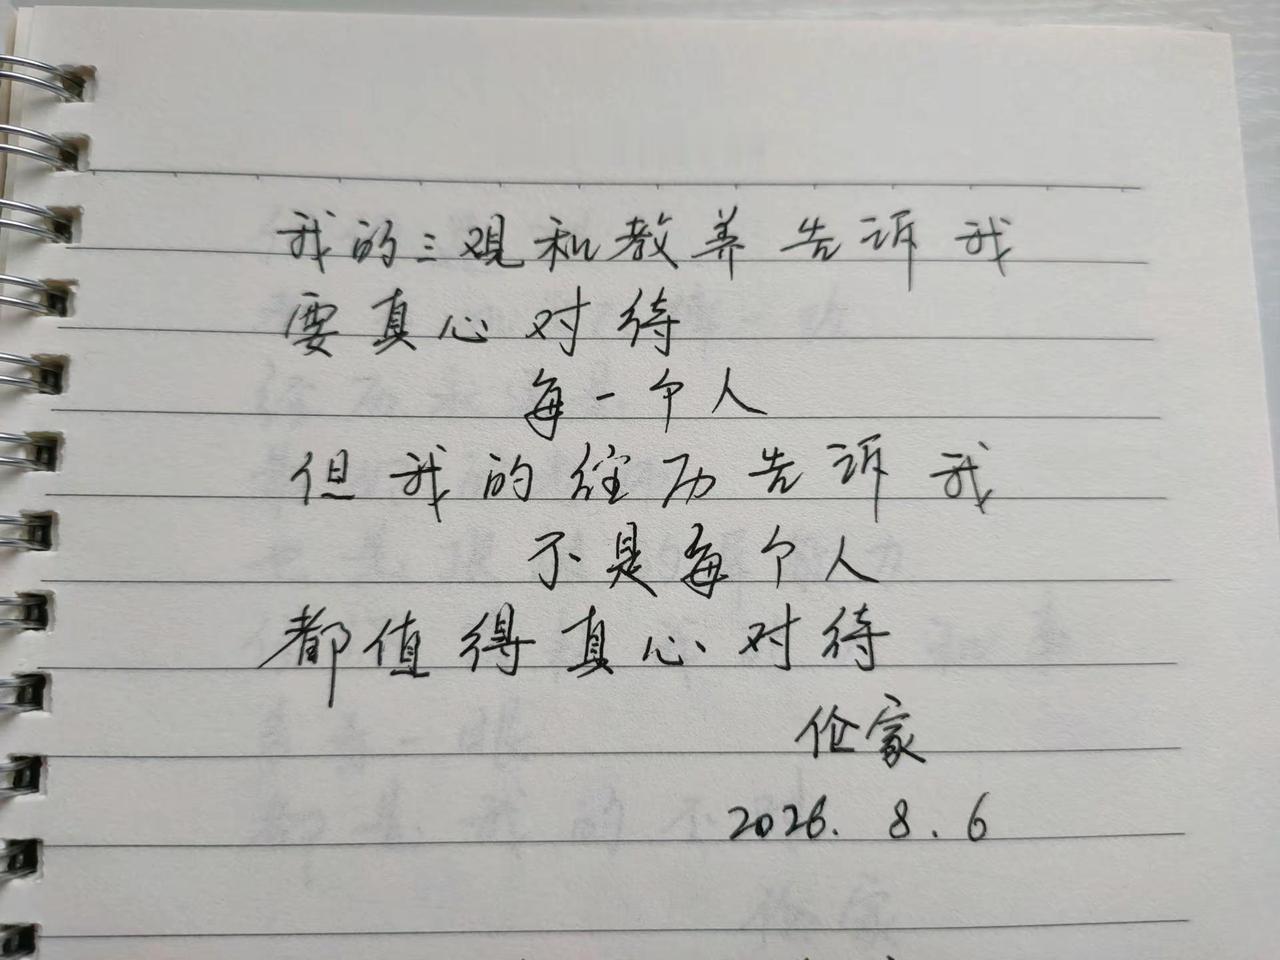 我的三观和教养告诉我
要真心对待
每一个人
但我的经历告诉我
不是每个人
都值得真心对待
家
2026. 8. 6